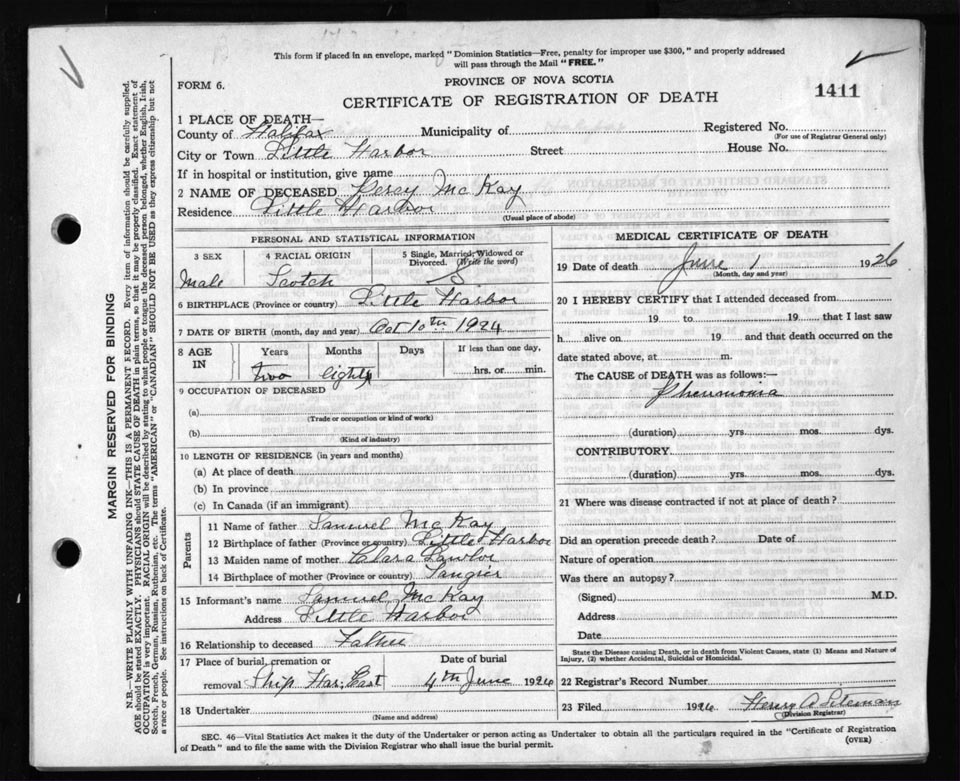 This form if placed in an envelope, marked "Dominion Statistics—Free, penalty for improper use $300," and properly addressed
will pass through the Mail "FREE."
FORM 6.
PROVINCE OF NOVA SCOTIA
CERTIFICATE OF REGISTRATION OF DEATH
1411
1 PLACE OF DEATH—
County of Halifax Municipality of Registered No.
(For use of Registrar General only)
City or Town Little Harbor Street House No.
If in hospital or institution, give name
2 NAME OF DECEASED Percy McKay
Residence Little Harbor
(Usual place of abode)
PERSONAL AND STATISTICAL INFORMATION
3 SEX 4 RACIAL ORIGIN 5 Single, Married, Widowed or
Divorced. (Write the word)
Male Scotch S
6 BIRTHPLACE (Province or country) Little Harbor
7 DATE OF BIRTH (month, day and year) Oct 10th 1924
8 AGE IN Years Months Days If less than one day,
Two eight hrs. or min.
9 OCCUPATION OF DECEASED
(a)
(Trade or occupation or kind of work)
(b)
(Kind of industry)
10 LENGTH OF RESIDENCE (in years and months)
(a) At place of death
(b) In province
(c) In Canada (if an immigrant)
Parents
11 Name of father Samuel McKay
12 Birthplace of father (Province or country) Little Harbor
13 Maiden name of mother Clara Lawlor
14 Birthplace of mother (Province or country) Tangier
15 Informant's name Samuel McKay
Address Little Harbor
16 Relationship to deceased Father
17 Place of burial, cremation or Date of burial
removal Ship Har. East 4th June 1926
18 Undertaker
(Name and address)
MEDICAL CERTIFICATE OF DEATH
19 Date of death June 1 1926
(Month, day and year)
20 I HEREBY CERTIFY that I attended deceased from
19 to 19 that I last saw
h alive on 19 and that death occurred on
date stated above, at m.
The CAUSE of DEATH was as follows:—
Pneumonia
(duration) yrs. mos. dys.
CONTRIBUTORY
(duration) yrs. mos. dys.
21 Where was disease contracted if not at place of death?
Did an operation precede death? Date of
Nature of operation
Was there an autopsy?
(Signed) M.D.
Address
Date
State the Disease causing Death, or in death from Violent Causes, state (1) Means and Nature of
Injury, (2) whether Accidental, Suicidal or Homicidal.
22 Registrar's Record Number
23 Filed 1926 Henry A
(Division Registrar)
SEC. 46—Vital Statistics Act makes it the duty of the Undertaker or person acting as Undertaker to obtain all the particulars required in the "Certificate of Registration
of Death" and to file the same with the Division Registrar who shall issue the burial permit.
(OVER)
MARGIN RESERVED FOR BINDING
N.B.—WRITE PLAINLY, WITH UNFADING INK—THIS IS A PERMANENT RECORD. Every item of information should be carefully supplied.
AGE should be stated EXACTLY. PHYSICIANS should STATE CAUSE OF DEATH in plain terms, so that it may be properly classified. Exact statement of
OCCUPATION is very important. RACIAL ORIGIN will be described by stating to what people or tongue the deceased person belonged, whether English, Irish,
Scotch, French, German, Russian, Ruthenian, etc. The terms "AMERICAN" or "CANADIAN" SHOULD NOT BE USED as they express citizenship but not
a race or people. See instructions on back of Certificate.